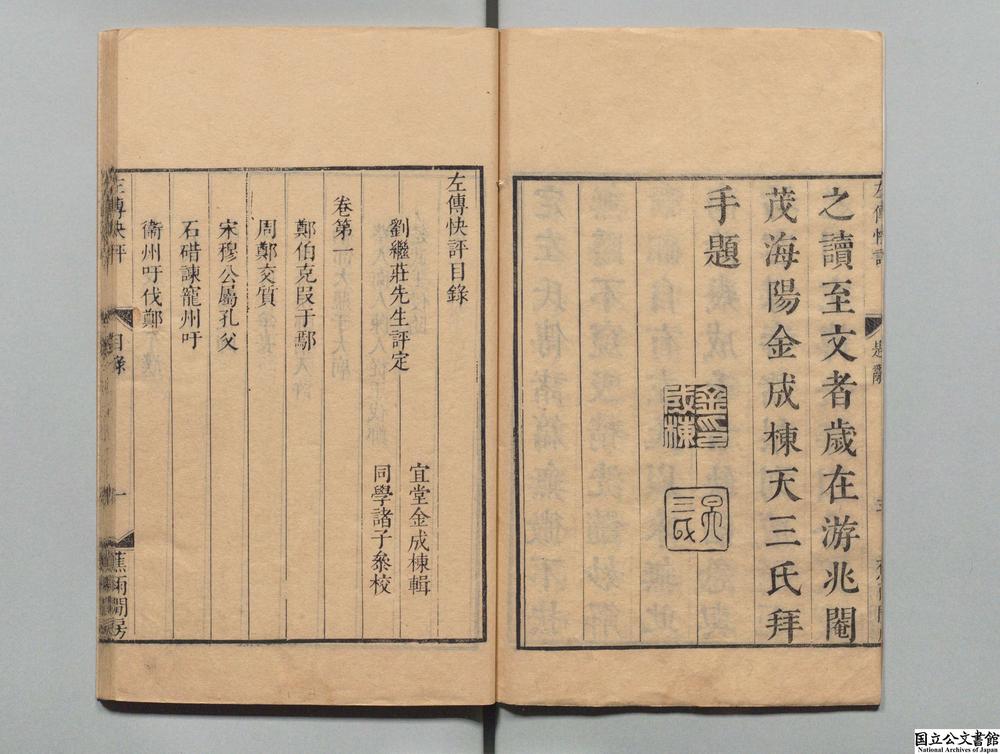 之讀至文者歲在游兆閹
茂海陽金成棟天三氏拜
手題
金印成棟
左傳快評目錄
劉繼莊先生評定
宜堂金成棟輯
同學諸子叅校
卷第一
鄭伯克段于鄢
周鄭交質
宋穆公屬孔父
石碏諫寵州吁
衛州吁伐鄭
左傳快評
目錄
一
蕉雨閒房
国立公文書館
National Archives of Japan